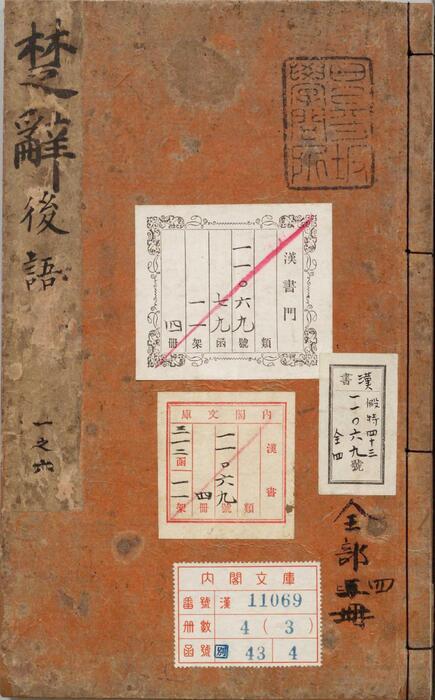 楚辭後語
一之六
昌平坂
學問所
漢書門
類
一一〇六九號
七九函
一一架
四冊
漢書
殿特四十三
一一〇六九號
全四
內閣文庫
漢書
類
一一〇六九號
四冊
三一二函
一一架
全部
四冊
內閣文庫
番號 漢 11069
冊數 4(3)
函號 別 43 4